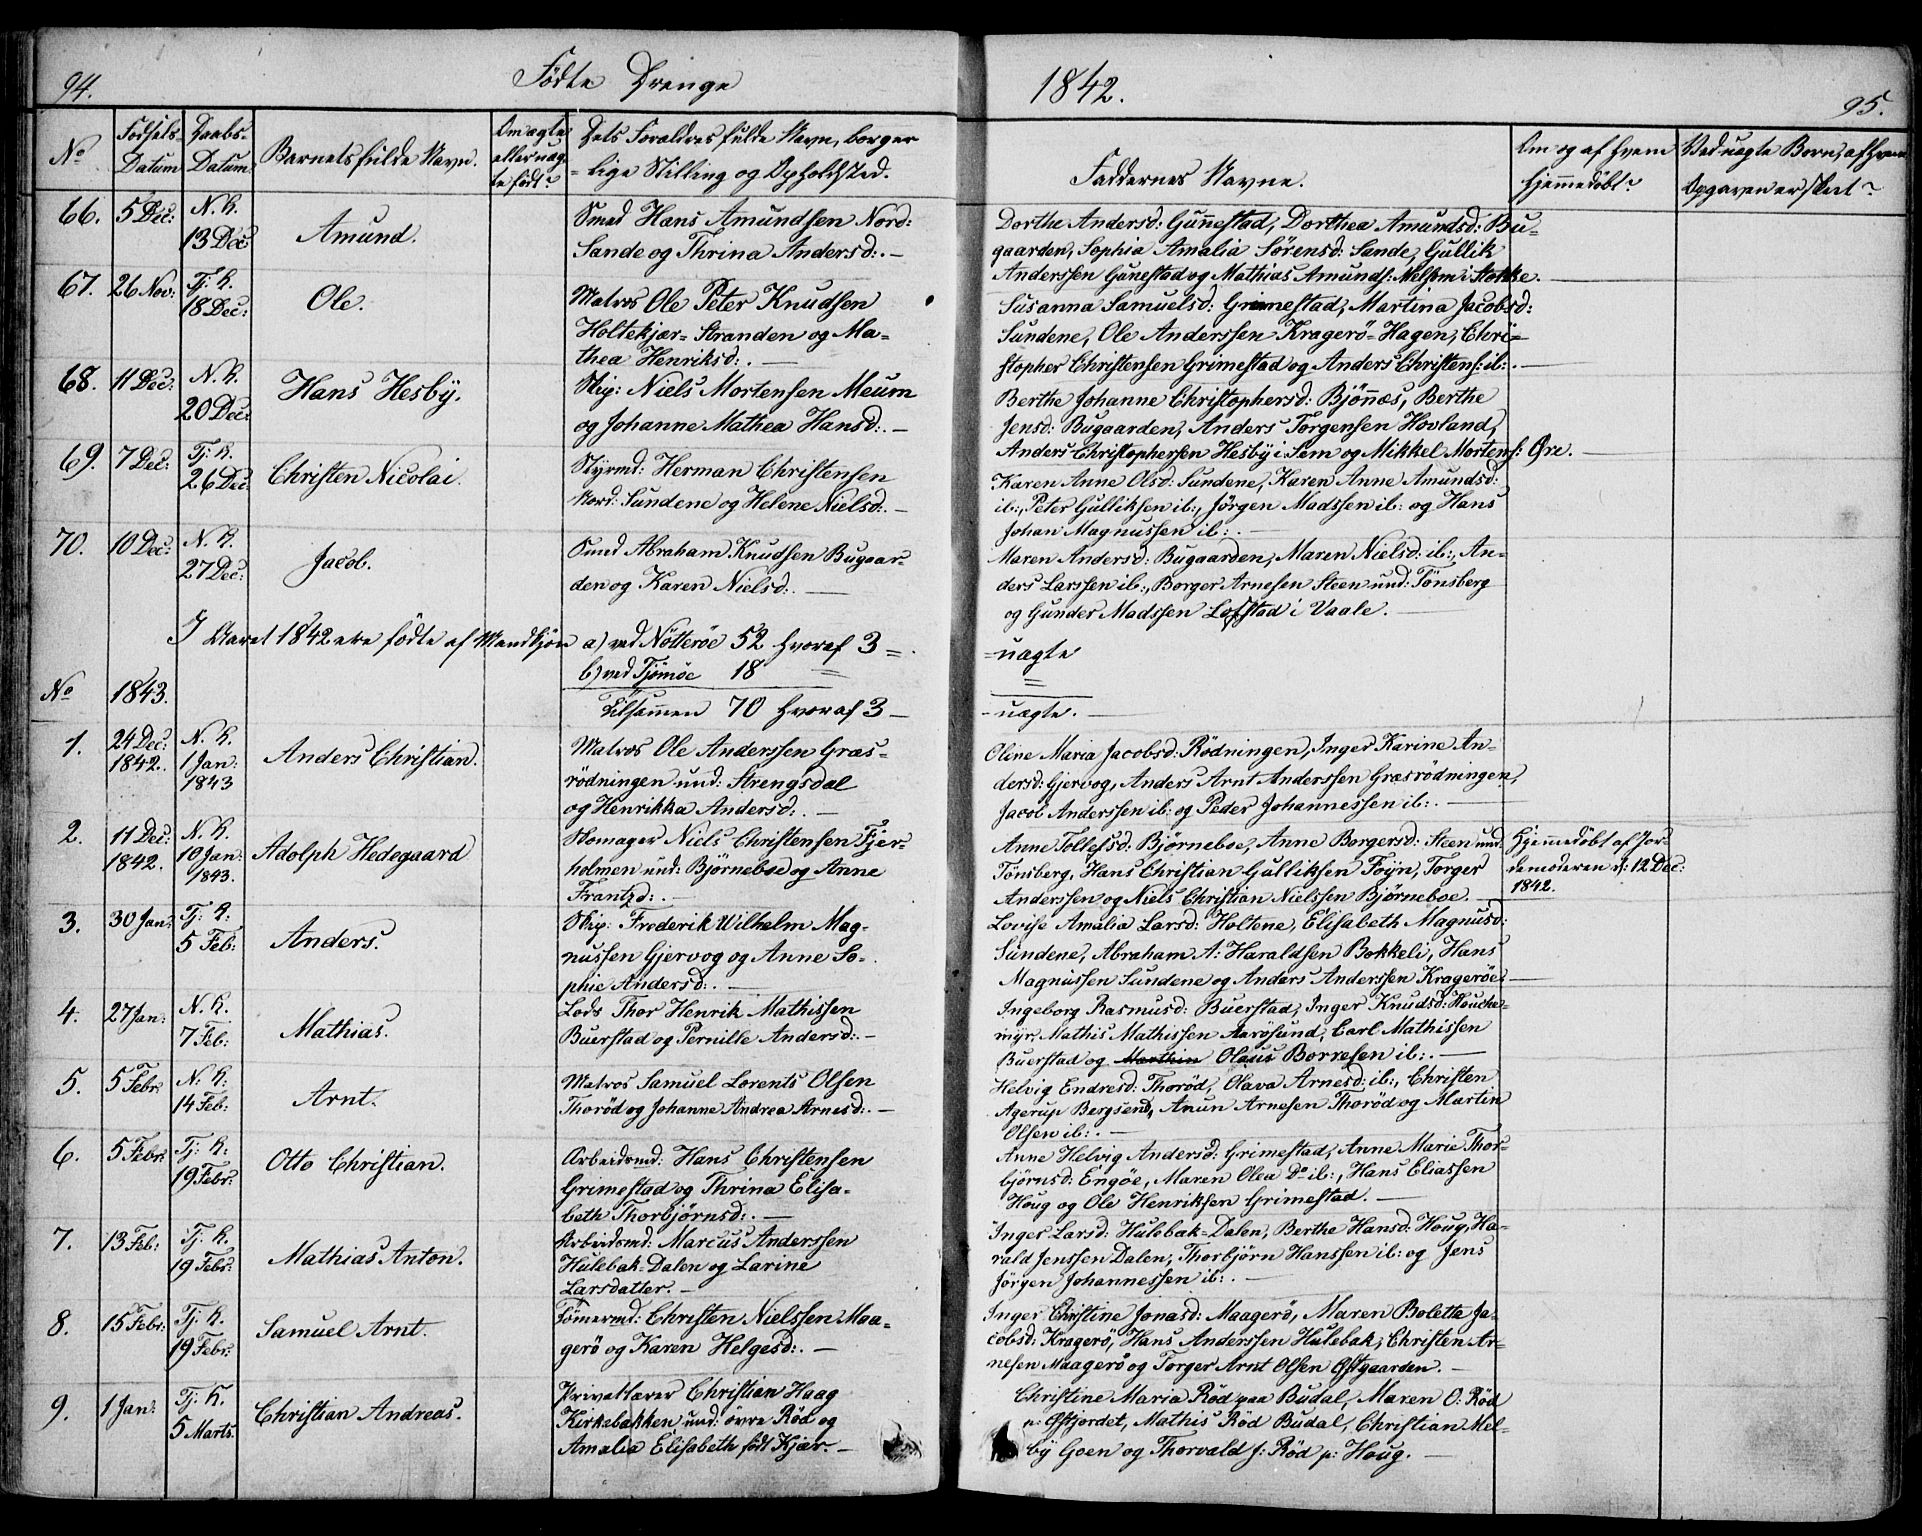 94.
Födte Drenge
1842.
95.
No
Fødsels-
Datum
Daabs-
Datum
Barnets fulde Navn.
Om ægte
eller uæg-
te født?
Dets Forældres fulde Navn, borger
-lige Stilling og Opholdsted.
Faddernes Navne.
Om og af hvem
hjemmedøbt?
Ved uægte Børn, af hvem
Opgaven er skeet?
66.
5 Dec:
N. K.
13 Dec:
Amund.
Smed Hans Amundsen Nord:
Sande og Thrina Andersd:. —
Dorthe Andersd: Gunnestad, Dorthea Amundsd: Bu-
gaarden, Sophia Amalia Sörensd: Sande, Gullik
Anderssen Gunestad og Mathias Amunds: Melsom i Stokke.
67.
26 Nov:
Tj: K.
18 Dec:
Ole.
Matros Ole Peter Knudsen
Holtekjær-Stranden og Ma-
thea Henriksd:. —
Susanna Samuelsd: Grimestad, Martina Jacobsd:
Sundene, Ole Anderssen Kragerö-Hagen, Chri-
stopher Christensen Grimestad og Anders Christens: ib:. —
68.
11 Dec:
N. K.
20 Dec:
Hans Hesby.
Skip: Niels Mortensen Meum
og Johanne Mathea Hansd:. —
Berthe Johanne Christophersd: Bjönnæs, Berthe
Jensd: Bugaarden, Anders Torgensen Hovland,
Anders Christophersen Hesby i Sem og Mikkel Mortens: Øre. —
69.
7 Dec:
Tj: K.
26 Dec:
Christen Nicolai.
Styrmd: Herman Christensen
Nord: Sundene og Helene Nielsd:. —
Karen Anne Olsd: Sundene, Karen Anne Amundsd:
ib:, Peter Gulliksen ib:, Jörgen Madssen ib: og Hans
Johan Magnussen ib:. —
70.
10 Dec:
N. K.
27 Dec:
Jacob.
Smed Abraham Knudsen Bugaar-
den og Karen Nielsd:. —
Maren Andersd: Bugaarden, Maren Nielsd: ib:, An-
ders Larssen ib:, Borger Arnesen Steen und: Tönsberg
og Gunder Madssen Lofstad i Vaale. —
I Aaret 1842 ere födte af Mandkjön a) ved Nötteröe 52 hvoraf 3 =
=uægte
b) ved Tjömöe 18 =
=
Tilsammen 70 hvoraf 3 —
- uægte. —
No
1843.
1.
24 Dec:
1842.
N. K.
1 Jan:
1843
Anders Christian.
Matros Ole Anderssen Græs-
rödningen und: Strengsdal
og Henrikka Andersd:. —
Oline Maria Jacobsd: Rödningen, Inger Karine An-
dersd: Gjervog, Anders Arnt Anderssen Græsrödningen,
Jacob Anderssen ib: og Peder Johannessen ib:. —
2.
11 Dec:
1842.
N. K.
10 Jan:
1843.
Adolph Hedegaard
Skomager Niels Christensen Fjer-
holmen und: Björneboe og Anne
Frantzd:. —
Anne Tollefsd: Björneboe, Anne Borgersd: Steen und:
Tönsberg, Hans Christian Gulliksen Föyn, Torger
Anderssen og Niels Christian Nielssen Björneboe. —
Hjemmedöbt af Jor-
demoderen d: 12 Dec:
1842.
3.
30 Jan:
Tj: K:
5 Feb:
Anders.
Skip: Frederik Wilhelm Mag-
nussen Gjervog og Anne So-
phie Andersd:. —
Lovise Amalia Larsd: Holtene, Elisabeth Magnusd:
Sundene, Abraham A: Haraldsen Bokkeli, Hans
Magnussen Sundene og Anders Anderssen Krageröe. —
4.
27 Jan:
N. K.
7 Feb:
Mathias.
Lods Thor Henrik Mathissen
Buerstad og Pernille Andersd:. —
Ingeborg Rasmusd: Buerstad, Inger Knudsd: Houche-
myr, Mathis Mathissen Aarösund, Carl Mathissen
Buerstad og Marthin Olaus Borresen ib:. —
5.
5 Febr:
N. K:
14 Feb:
Arnt.
Matros Samuel Lorents Olsen
Thoröd og Johanne Andrea Arnesd:. —
Helvig Endresd: Thoröd, Olava Arnesd: ib:, Christen
Agerup Bergsend, Anun Arnesen Thoröd og Martin
Olsen ib:. —
6.
5 Febr:
Tj: K:
19 Febr:
Otto Christian.
Arbeidsmd: Hans Christensen
Grimestad og Thrina Elisa-
beth Thorbjörnsd:. —
Anne Helvig Andersd: Grimestad, Anne Marie Thor-
björnsd: Engöe, Maren Olea Do ib:, Hans Eliassen
Houg og Ole Henriksen Grimestad. —
7.
13 Feb:
Tj: K.
19 Febr:
Mathias Anton.
Arbeidsmd: Marcus Anderssen
Hulebak-Dalen og Larine
Larsdatter. —
Inger Larsd: Hulebak-Dalen, Berthe Hansd: Houg, Ha-
rald Jenssen Dalen, Thorbjörn Hanssen ib: og Jens
Jörgen Johannessen ib:. —
8.
15 Febr:
Tj: K.
19 Febr:
Samuel Arnt.
Tömermd: Christen Nielssen Maa-
gerö og Karen Helgesd:. —
Inger Christine Jonasd: Maagerö, Maren Bolette Ja-
cobsd: Kragerö, Hans Anderssen Hulebak, Christen Ar-
nesen Maagerö og Torger Arnt Olsen Østgaarden. —
9.
1 Jan:
Tj: K.
5 Marts.
Christian Andreas.
Privatlærer Christian Haag
Kirkebakken und: övre Röd og
Amalia Elisabeth födt Kjær. —
Christine Maria Röd paa Budal, Maren O: Röd
p: Østjordet, Mathis Röd Budal, Christian Mel-
by Goen og Thorvald J: Röd p: Houg. —